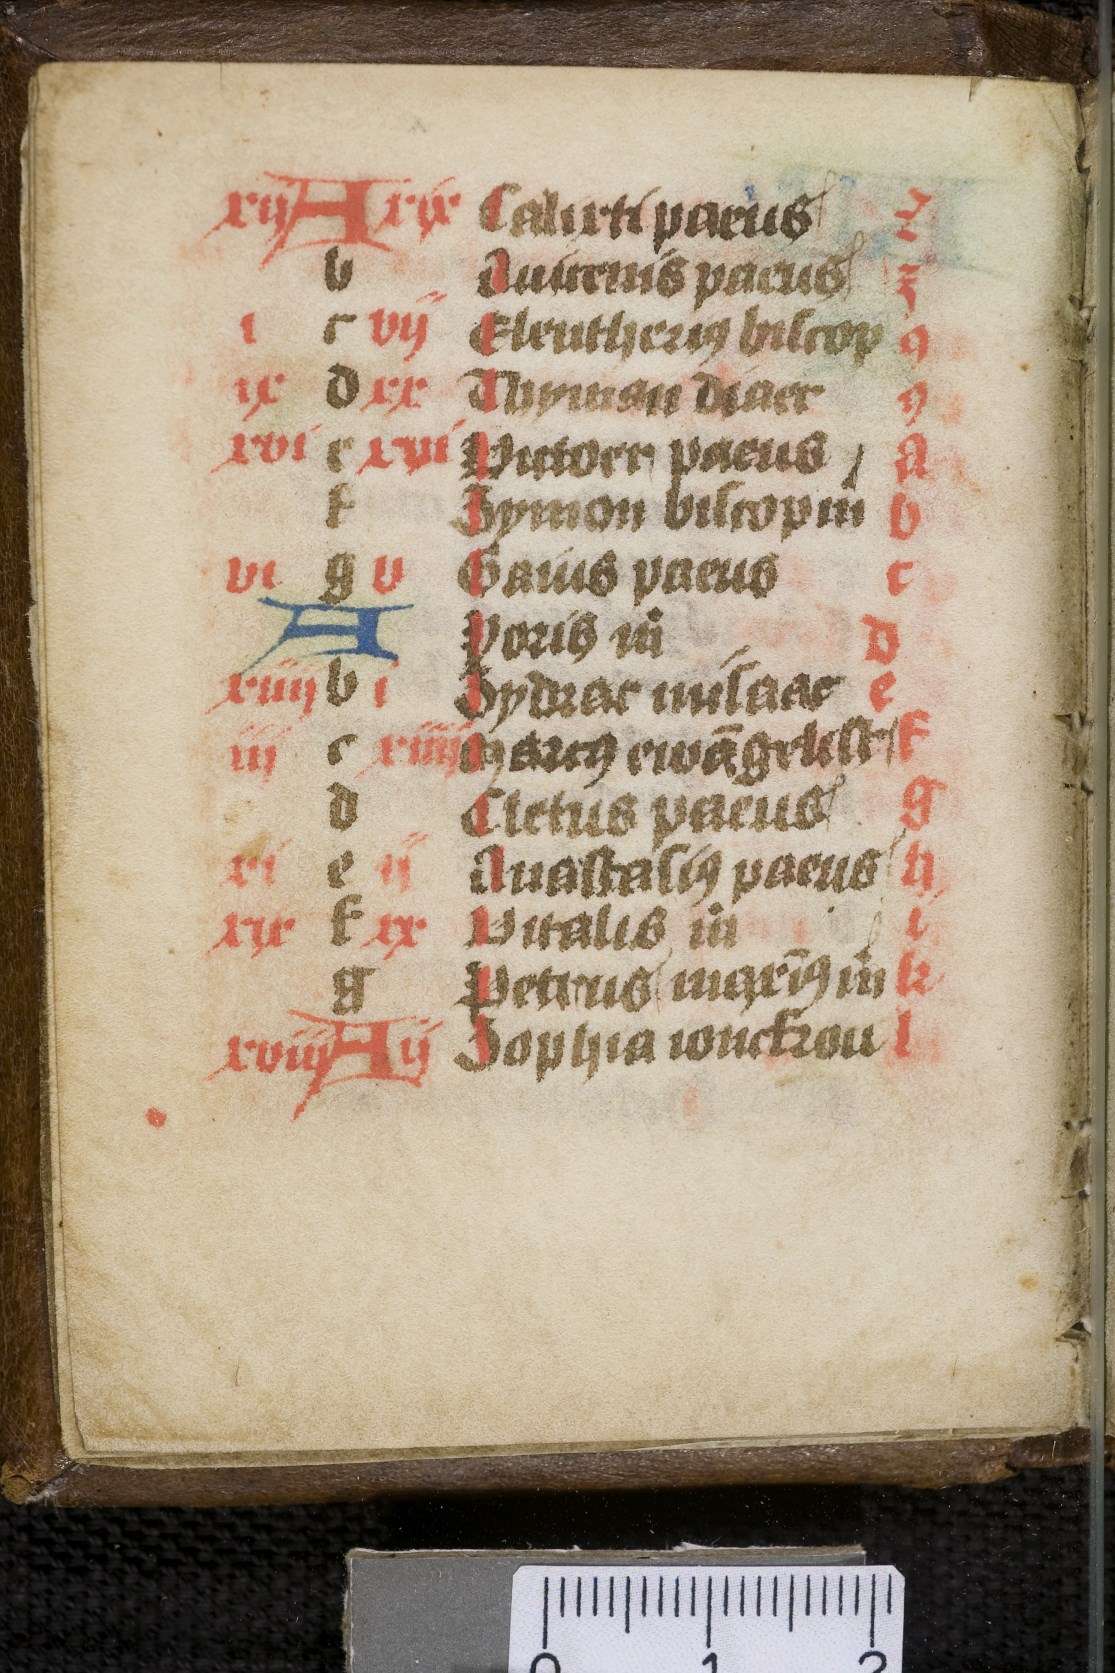 xij A xix Calixti paeus z
b Auicenis paeus z
i c viij Eleutherius biscop 9
ix d xx Thyman diaer 9
xvi e xvi Victoer paeus A
f Symon biscop m b
vi g v Gaius paeus c
A Yoris m d
xiiij b i Sydrac misaac e
iij c xiiij Marcus ewāgelist f
d Cletus paeus g
xi e ij Anastasius paeus h
xix f ix Vitalis m i
g Petrus m k
xviij A ij Sophia ioncfrou l
0 1 2